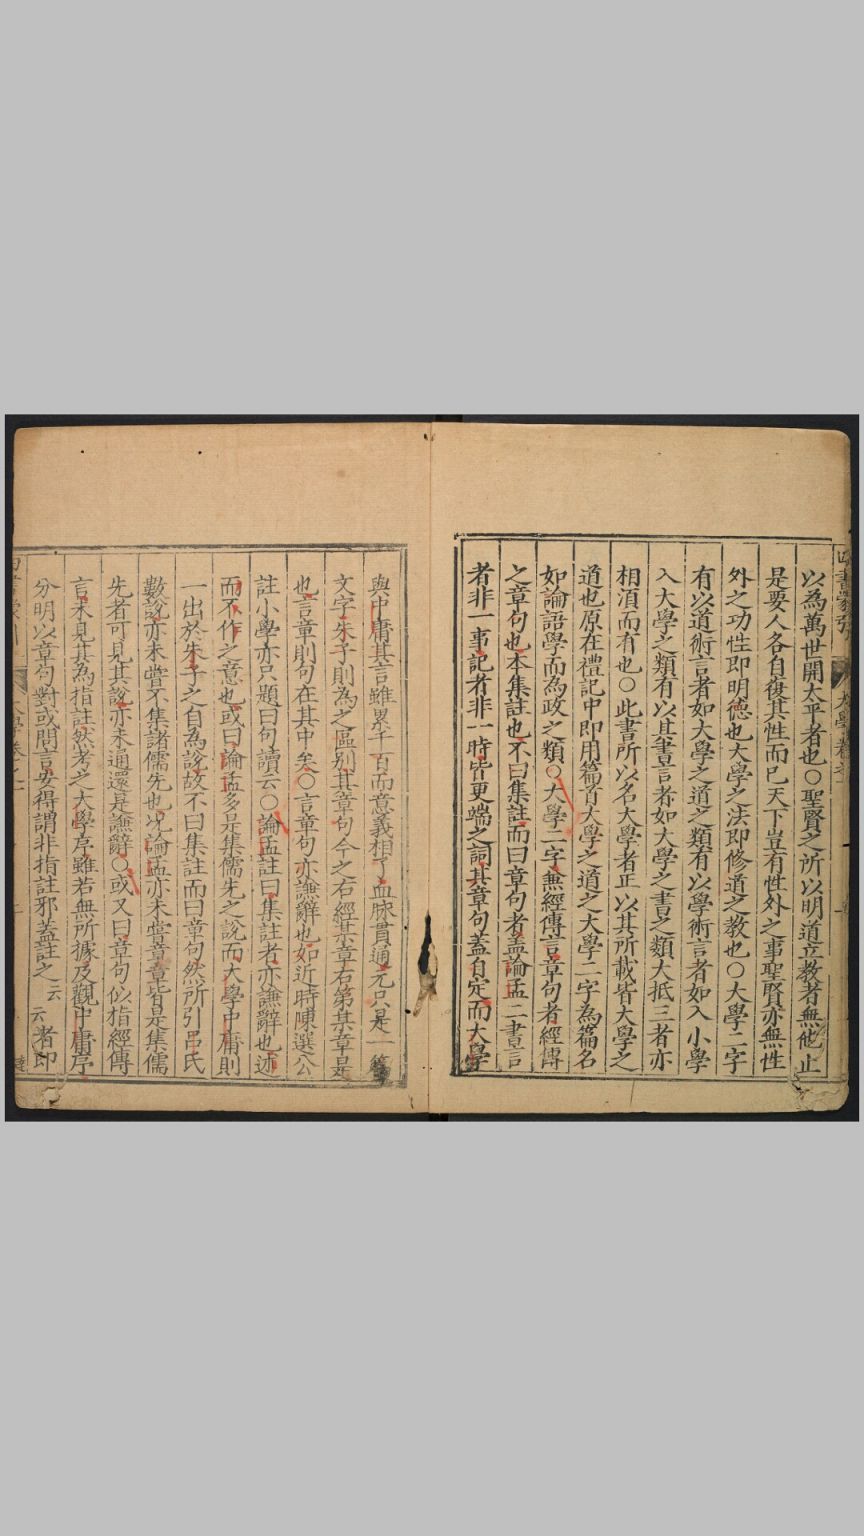 以為萬世開太平者也○聖賢之所以明道立教者無他止
是要人各自復其性而已天下豈有性外之事聖賢亦無性
外之功性即明德也大學之法即修道之教也○大學二字
有以道術言者如大學之道之類有以學術言者如入小學
入大學之類有以其書言者如大學之書之類大抵三者亦
相須而有也○此書所以名大學者正以其所載皆大學之
道也原在禮記中即用篇首大學之道之大學二字為篇名
如論語學而為政之類○大學二字兼經傳言章句者經傳
之章句也本集註也不曰集註而曰章句者盖論孟二書言
者非一事記者非一時皆更端之詞其章句蓋自定而大學
與中庸其言雖累千百而意義相 血脉貫通 只是一篇
文字朱子則為之區别其章句今之右經某章右第某章是
也言章則句在其中矣○言章句亦謙辭也如近時陳選公
註小學亦只題曰句讀云○論孟註曰集註者亦謙辭也述
而不作之意也或曰論孟多是集儒先之說而大學中庸則
一出於朱子之自為說故不曰集註而曰章句然所引吕氏
數說亦未嘗不集諸儒先也况論孟亦未嘗章章皆是集儒
先者可見其說亦未通還是謙辭○或又曰章句似指經傳
言未見其為指註然考之大學序雖若無所據及觀中庸序
分明以章句對或問言安得謂非指註邪盖註之云云者即